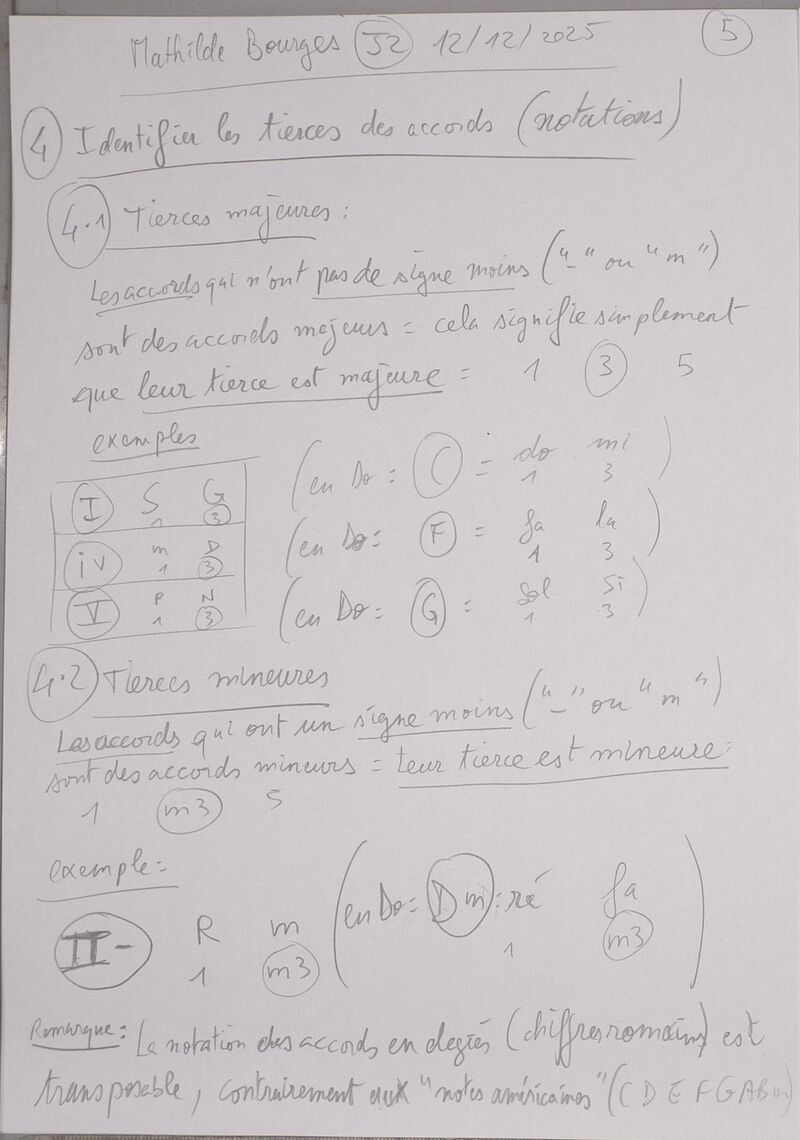 Mathilde Bourges J2 12/12/2025 5
4 Identifier les tierces des accords (notations)
4.1 Tierces majeures :
Les accords qui n'ont pas de signe moins ("-" ou "m")
sont des accords majeurs = cela signifie simplement
que leur tierce est majeure = 1 3 5
exemples
I S G (en Do = C = do mi)
1 3 1 3
iv m D (en Do = F = fa la)
1 3 1 3
V P N (en Do = G = Sol Si)
1 3 1 3
4.2 Tierces mineures
Les accords qui ont un signe moins ("-" ou "m")
sont des accords mineurs = leur tierce est mineure :
1 m3 5
exemple =
II- R m (en Do = Dm : ré fa)
1 m3 1 m3
Remarque : La notation des accords en degrés (chiffres romains) est
transposable, contrairement aux "notes américaines" (C D E F G A B)